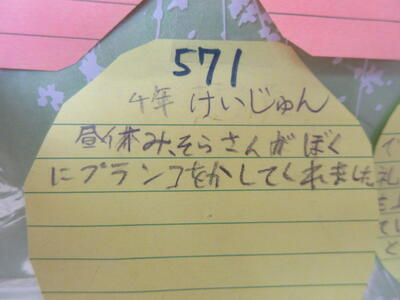 571
4年 けいじゅん
昼休み、そらさんがぼく
にブランコをかしてくれました